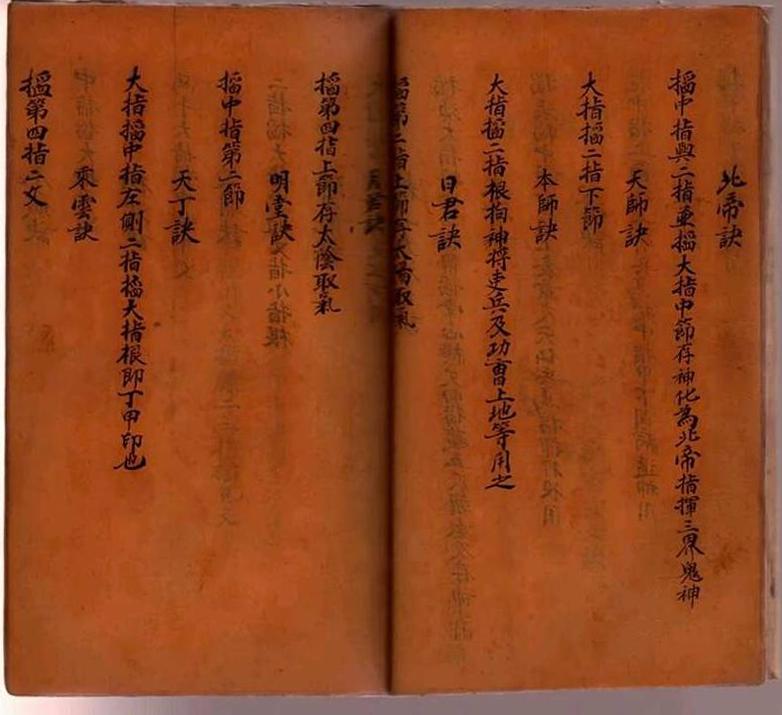 北帝訣
搯中指與二指並搯大指中節存神化為北帝指揮三界鬼神
天師訣
大指搯二指下節
本師訣
大指搯二指根拘神將吏兵及功曹上地等用之
日君訣
搯第二指上節存太陽取氣
月君訣
搯第四指上節存太陰取氣
明堂訣
搯中指第二節
天丁訣
大指搯中指左側二指搯大指根即丁甲印也
乘雲訣
搯第四指二文